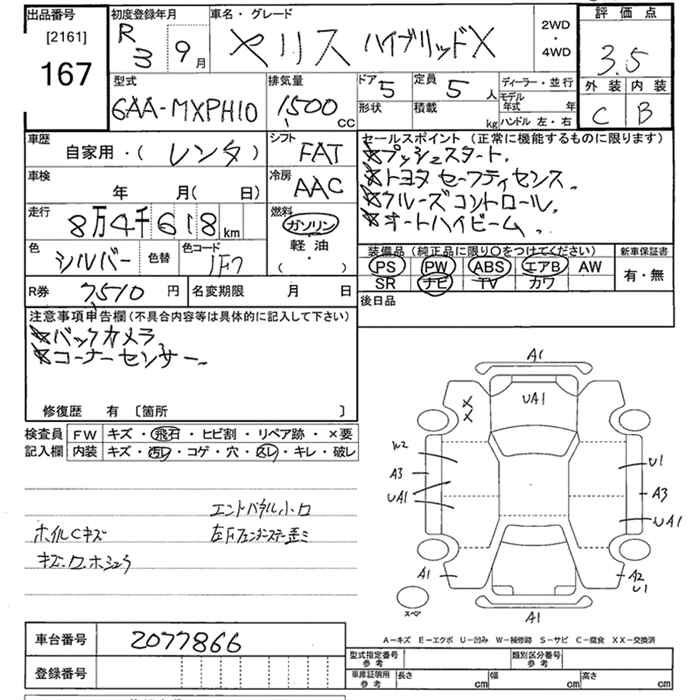 出品番号
[2161]
167
初度登録年月
R3 9月
車名・グレード
ヤリス ハイブリッドX
2WD・4WD
評価点
3.5
外装 内装
C B
型式
6AA-MXPH10
排気量
1500 cc
ドア 5
形状
定員 5 人
積載 kg
ディーラー・並行
モデル年式 年
ハンドル 左・右
車歴
自家用・(レンタ)
シフト
FAT
車検
年 月( 日)
冷房
AAC
走行
8万4千618km
燃料
ガソリン
軽油
( ・ )
色
シルバー
色替
色コード
1F7
R券 7510 円
名変期限 月 日
セールスポイント(正常に機能するものに限ります)
プッシュスタート.
トヨタ セーフティセンス.
クルーズコントロール.
オートハイビーム.
装備品(純正品に限り〇をつけてください)
PS PW ABS エアB AW
SR ナビ TV カワ
新車保証書
有・無
後日品
注意事項申告欄(不具合内容等は具体的に記入して下さい)
バックカメラ
コーナーセンサー.
修復歴 有 〔箇所 〕
検査員記入欄
FW キズ・飛石・ヒビ割・リペア跡・×要
内装 キズ・汚レ・コゲ・穴・スレ・キレ・破レ
エントパネル小口
ホイルCキズ
左Fフェンダーステー歪ミ
キズ.ロ.ホシュウ
A1
UA1
X
X
W2
A3
UA1
U1
A3
UA1
A1
A2
U1
A1
スペア
A-キズ E-エクボ U-凹み W-補修跡 S-サビ C-腐食 XX-交換済
車台番号
2077866
登録番号
型式指定番号 参考
類別区分番号 参考
車庫証明用 参考
長さ cm
幅 cm
高さ cm